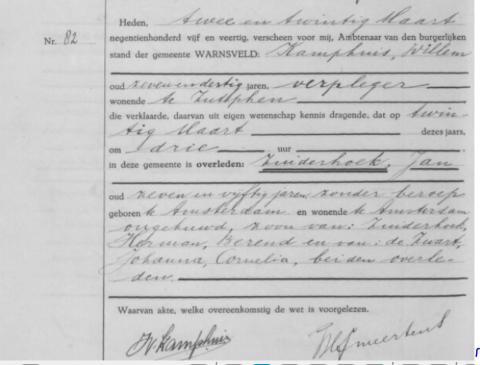 Nr. 82
Heden, twee en twintig Maart
negentienhonderd vijf en veertig, verscheen voor mij, Ambtenaar van den burgerlijken
stand der gemeente WARNSVELD: Kamphuis, Willem
oud zevenendertig jaren, verpleger
wonende te Zutphen
die verklaarde, daarvan uit eigen wetenschap kennis dragende, dat op twin-
tig Maart dezes jaars,
om drie uur
in deze gemeente is overleden: Zuiderhoek, Jan
oud zeven en vyftig jaren, zonder beroep
geboren te Amsterdam en wonende te Amsterdam
ongehuwd, zoon van: Zuiderhoek,
Herman, Berend en van: de Zwart,
Johanna, Cornelia, beiden overle-
den.
Waarvan akte, welke overeenkomstig de wet is voorgelezen.
W Kamphuis